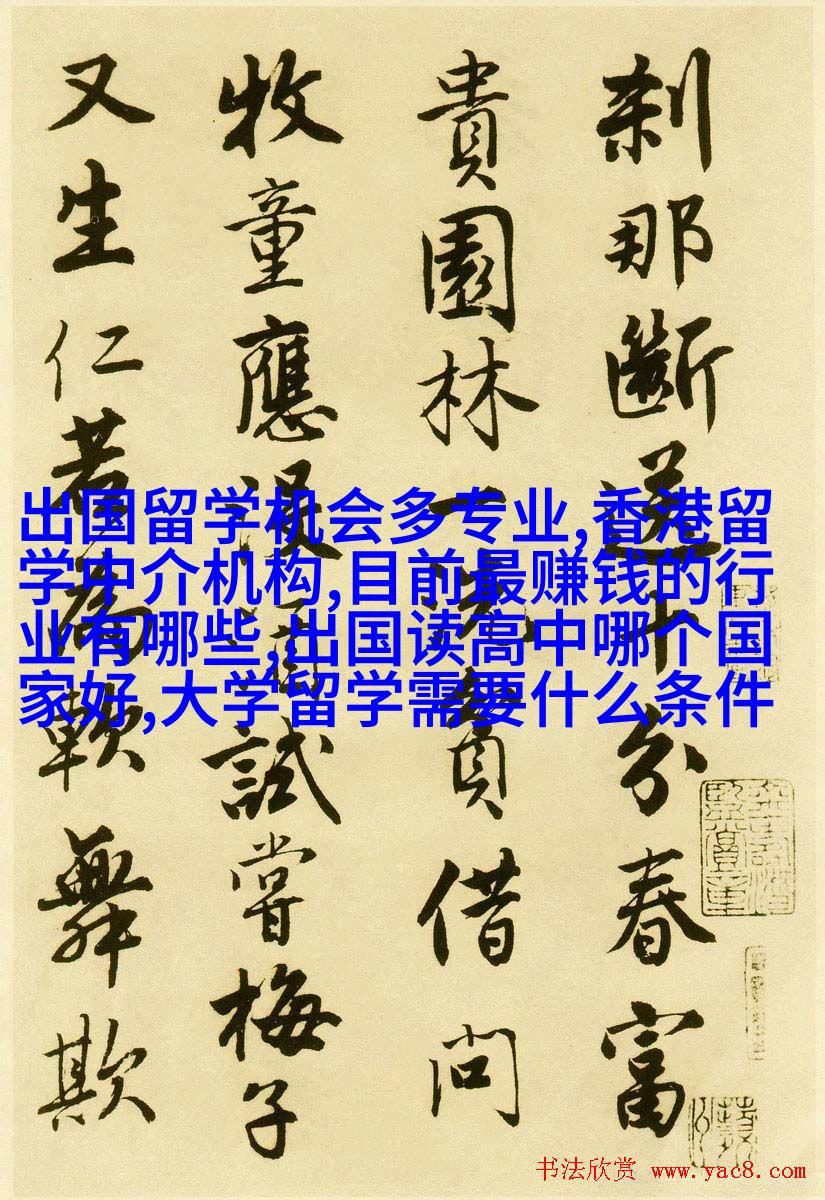 刹那斷送十分春富
貴園林一洗貧借問
牧童應没酒試嘗梅子
又生仁若為軟舞欺
出国留学机会多专业,香港留
学中介机构,目前最赚钱的行
业有哪些,出国读高中哪个国
家好,大学留学需要什么条件
书法欣赏 www.yac8.com